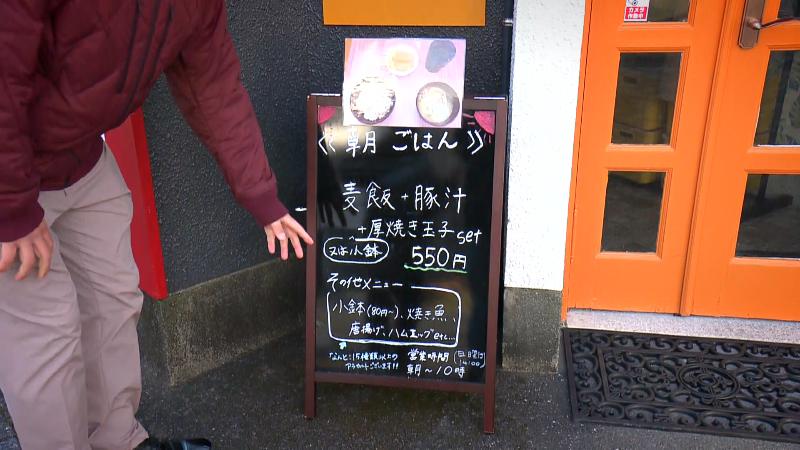 カメラ
作動中
《 朝 ごはん 》
麦飯+豚汁
+厚焼き玉子 set
又は小鉢
550円
その他メニュー
小鉢(80円~)、焼き魚、
唐揚げ、ハムエッグetc...
なんと!15種類以上の
アラカルトございます!!
営業時間
朝~10時
(日曜日
14:00)